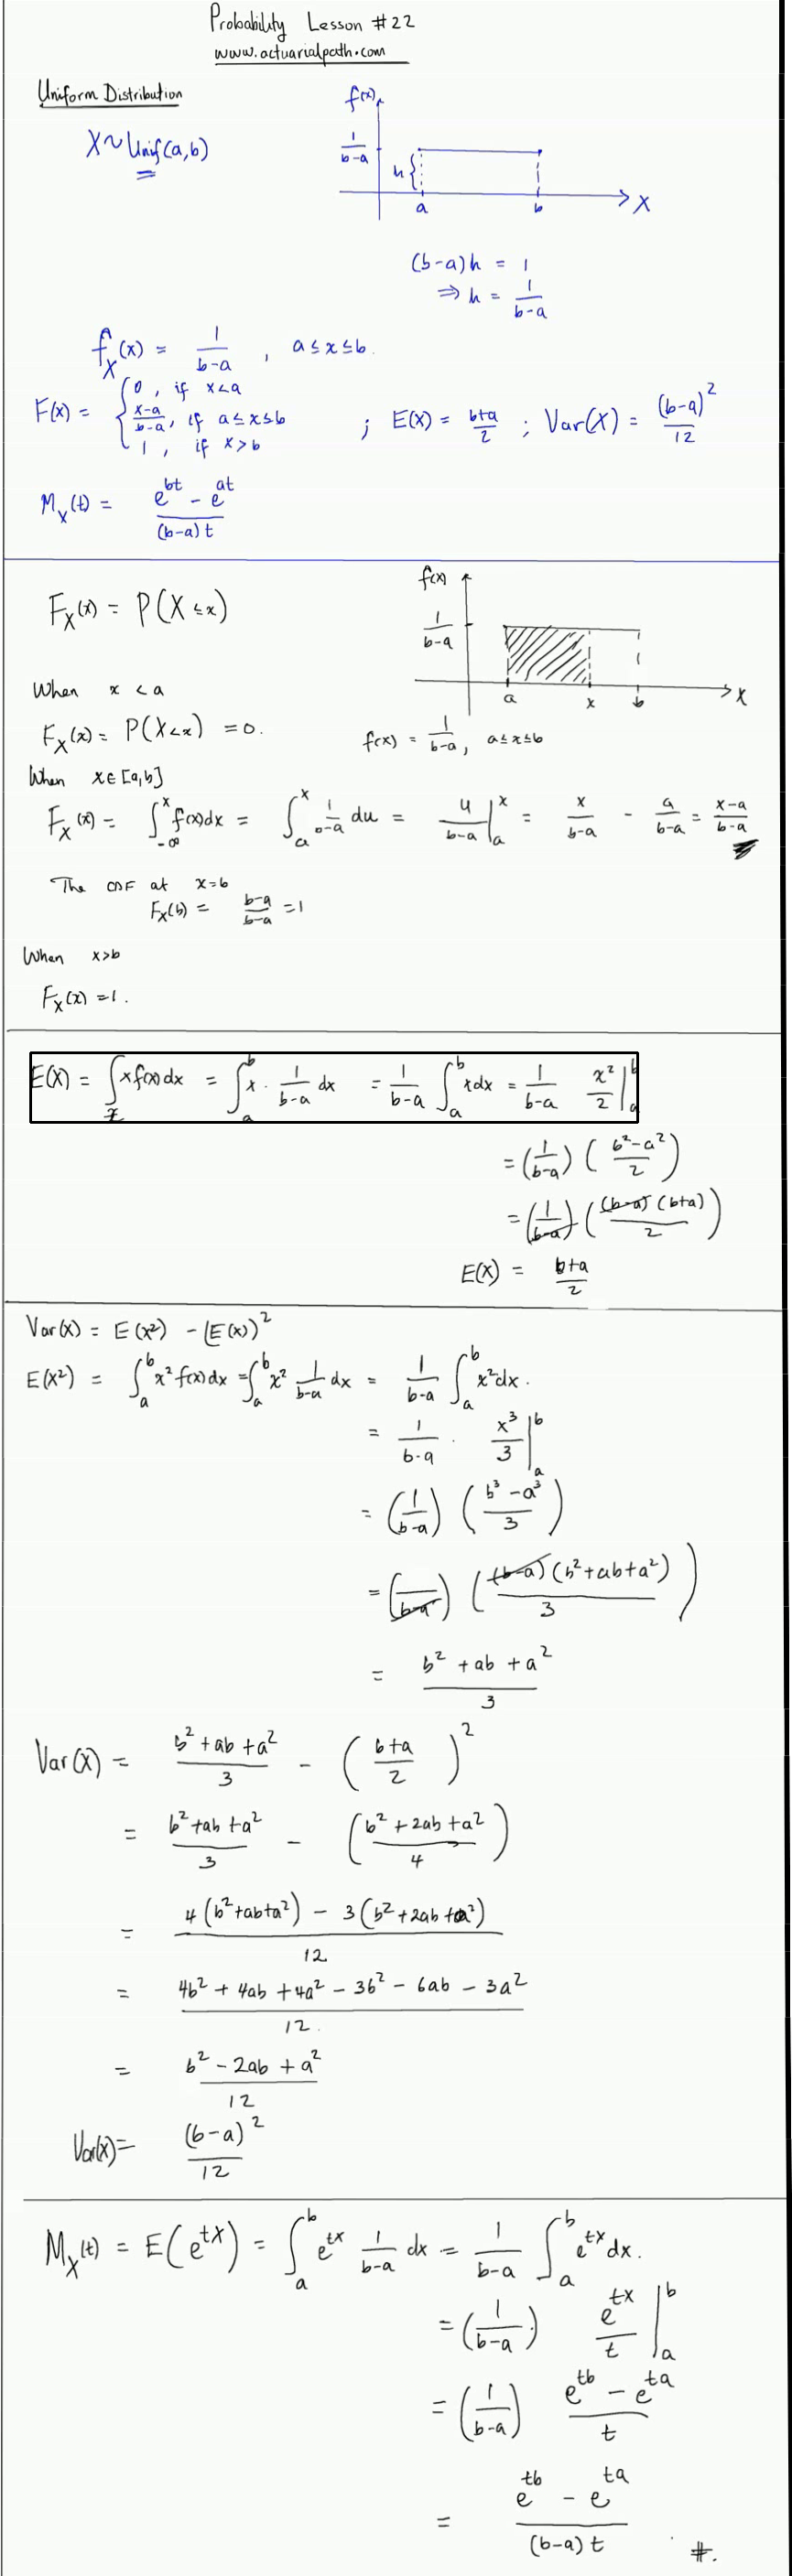 Probability Lesson #22
www.actuarialpath.com
Uniform Distribution
X ~ Unif(a,b)
f(x)
1/(b-a)
h {
a b X
(b-a)h = 1
⇒ h = 1/(b-a)
f_X(x) = 1/(b-a) , a ≤ x ≤ b.
F(x) = { 0, if x<a
(x-a)/(b-a), if a ≤ x ≤ b ; E(X) = (b+a)/2 ; Var(X) = (b-a)^2/12
1, if x>b
M_X(t) = (e^{bt} - e^{at})/((b-a)t)
F_X(x) = P(X ≤ x)
f(x)
1/(b-a)
a x b X
When x < a
F_X(x) = P(X<x) = 0.
f(x) = 1/(b-a), a ≤ x ≤ b
When x ∈ [a,b]
F_X(x) = ∫_{-∞}^x f(x)dx = ∫_a^x 1/(b-a) du = u/(b-a) |_a^x = x/(b-a) - a/(b-a) = (x-a)/(b-a)
The CDF at x=b
F_X(b) = (b-a)/(b-a) = 1
When x>b
F_X(x) = 1.
E(X) = ∫_x x f(x) dx = ∫_a^b x · 1/(b-a) dx = 1/(b-a) ∫_a^b x dx = 1/(b-a) x^2/2 |_a^b
= (1/(b-a)) ((b^2-a^2)/2)
= (1/(b-a)) ((b-a)(b+a)/2)
E(X) = (b+a)/2
Var(X) = E(X^2) - (E(X))^2
E(X^2) = ∫_a^b x^2 f(x) dx = ∫_a^b x^2 1/(b-a) dx = 1/(b-a) ∫_a^b x^2 dx.
= 1/(b-a) · x^3/3 |_a^b
= (1/(b-a)) ((b^3 - a^3)/3)
= (1/(b-a)) ((b-a)(b^2+ab+a^2)/3)
= (b^2 + ab + a^2)/3
Var(X) = (b^2 + ab + a^2)/3 - ((b+a)/2)^2
= (b^2 + ab + a^2)/3 - ((b^2 + 2ab + a^2)/4)
= (4(b^2+ab+a^2) - 3(b^2+2ab+a^2))/12
= (4b^2 + 4ab + 4a^2 - 3b^2 - 6ab - 3a^2)/12.
= (b^2 - 2ab + a^2)/12
Var(X) = (b-a)^2/12
M_X(t) = E(e^{tX}) = ∫_a^b e^{tx} 1/(b-a) dx = 1/(b-a) ∫_a^b e^{tx} dx.
= (1/(b-a)) e^{tx}/t |_a^b
= (1/(b-a)) (e^{tb} - e^{ta})/t
= (e^{tb} - e^{ta})/((b-a)t) #.